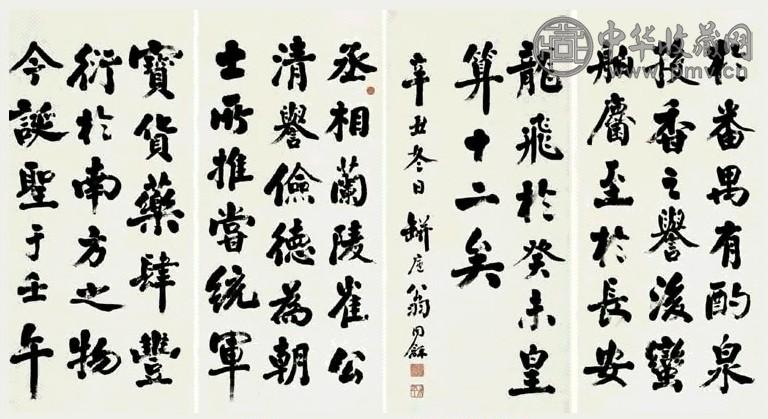 於番禺有酌泉
投香之譽後蠻
舶齎至於長安
龍飛於癸未皇
算十二矣
辛丑冬日 翁同龢
丞相蘭陵崔公
清譽儉德為朝
士所推嘗統軍
寶貨藥肆豐
衍於南方之物
今誕聖于壬午
中华收藏网